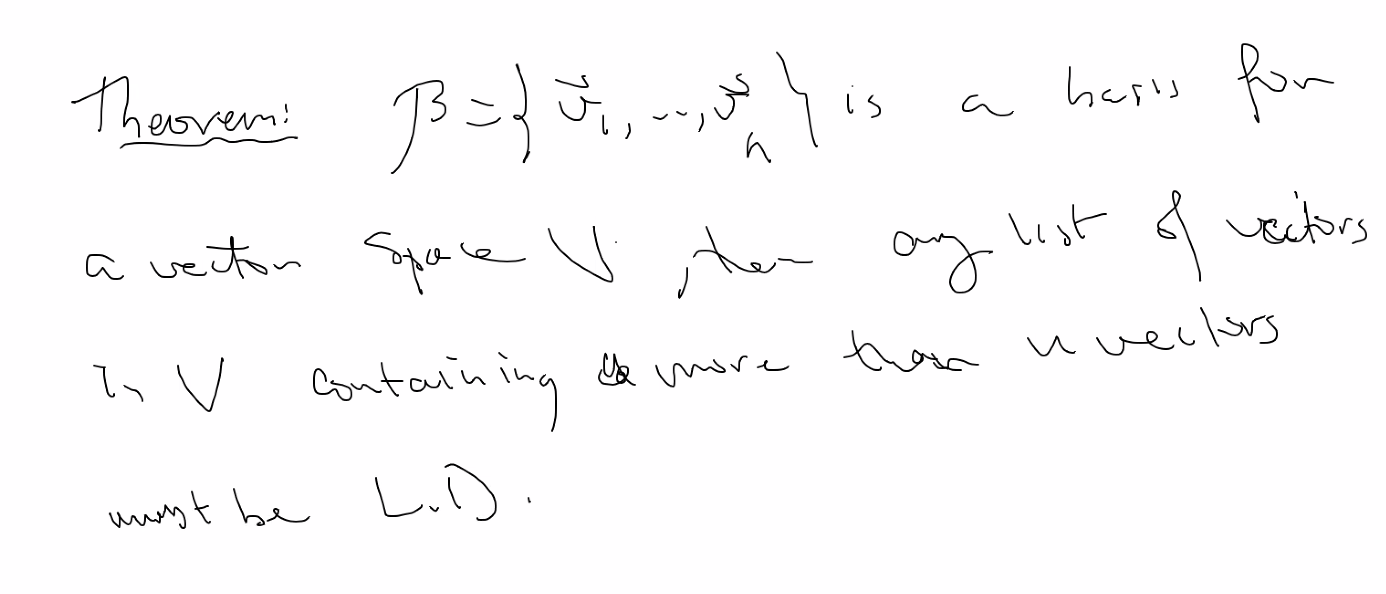 Theorem: β = { v⃗₁, ..., v⃗ₙ } is a basis for
a vector space V, then any list of vectors
in V containing more than n vectors
must be L.D.